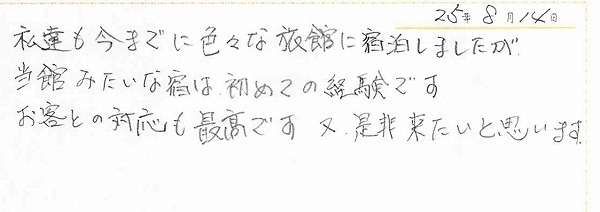 25年8月14日
私達も今までに色々な旅館に宿泊しましたが
当館みたいな宿は、初めての経験です
お客との対応も最高です 又、是非来たいと思います。